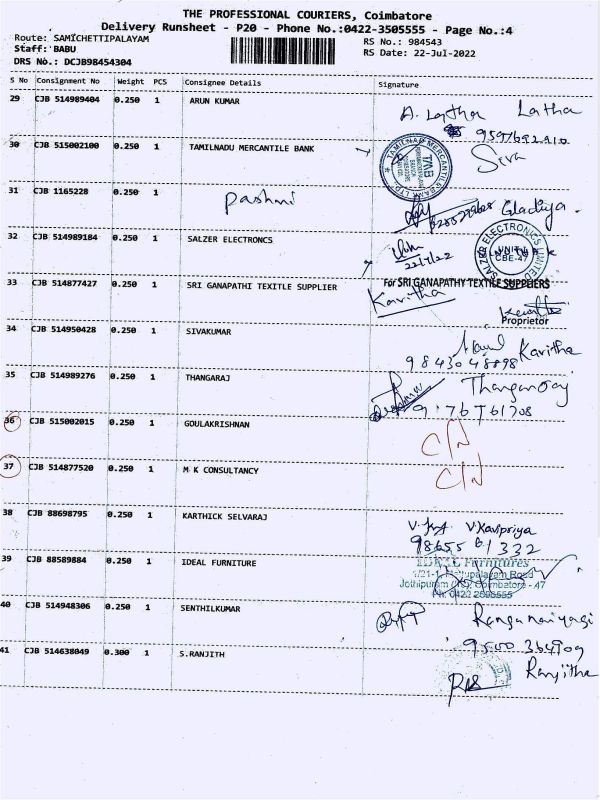 THE PROFESSIONAL COURIERS, Coimbatore
Delivery Runsheet - P20 - Phone No.:0422-3505555 - Page No.:4
Route: SAMICHETTIPALAYAM RS No.: 984543
Staff: BABU RS Date: 22-Jul-2022
DRS No.: DCJB98454304
S No Consignment No Weight PCS Consignee Details Signature
29 CJB 514989404 0.250 1 ARUN KUMAR A. Latha Latha
30 CJB 515002100 0.250 1 TAMILNADU MERCANTILE BANK Siva
TMB
31 CJB 1165228 0.250 1 Gladiya.
32 CJB 514989184 0.250 1 SALZER ELECTRONCS
22/7/22
SALZER ELECTRONICS LIMITED
CBE-47
33 CJB 514877427 0.250 1 SRI GANAPATHI TEXITLE SUPPLIER For SRI GANAPATHY TEXTILE SUPPLIERS
Kavitha
Proprietor
34 CJB 514950428 0.250 1 SIVAKUMAR Kavitha
9843048898
35 CJB 514989276 0.250 1 THANGARAJ
36 CJB 515002015 0.250 1 GOULAKRISHNAN C/N
37 CJB 514877520 0.250 1 M K CONSULTANCY C/N
38 CJB 88698795 0.250 1 KARTHICK SELVARAJ V.Kavipriya
98655 61332
39 CJB 88589884 0.250 1 IDEAL FURNITURE IDEAL Furnitures
40 CJB 514948306 0.250 1 SENTHILKUMAR Ranganaiyagi
41 CJB 514638049 0.300 1 S.RANJITH Ranjitha